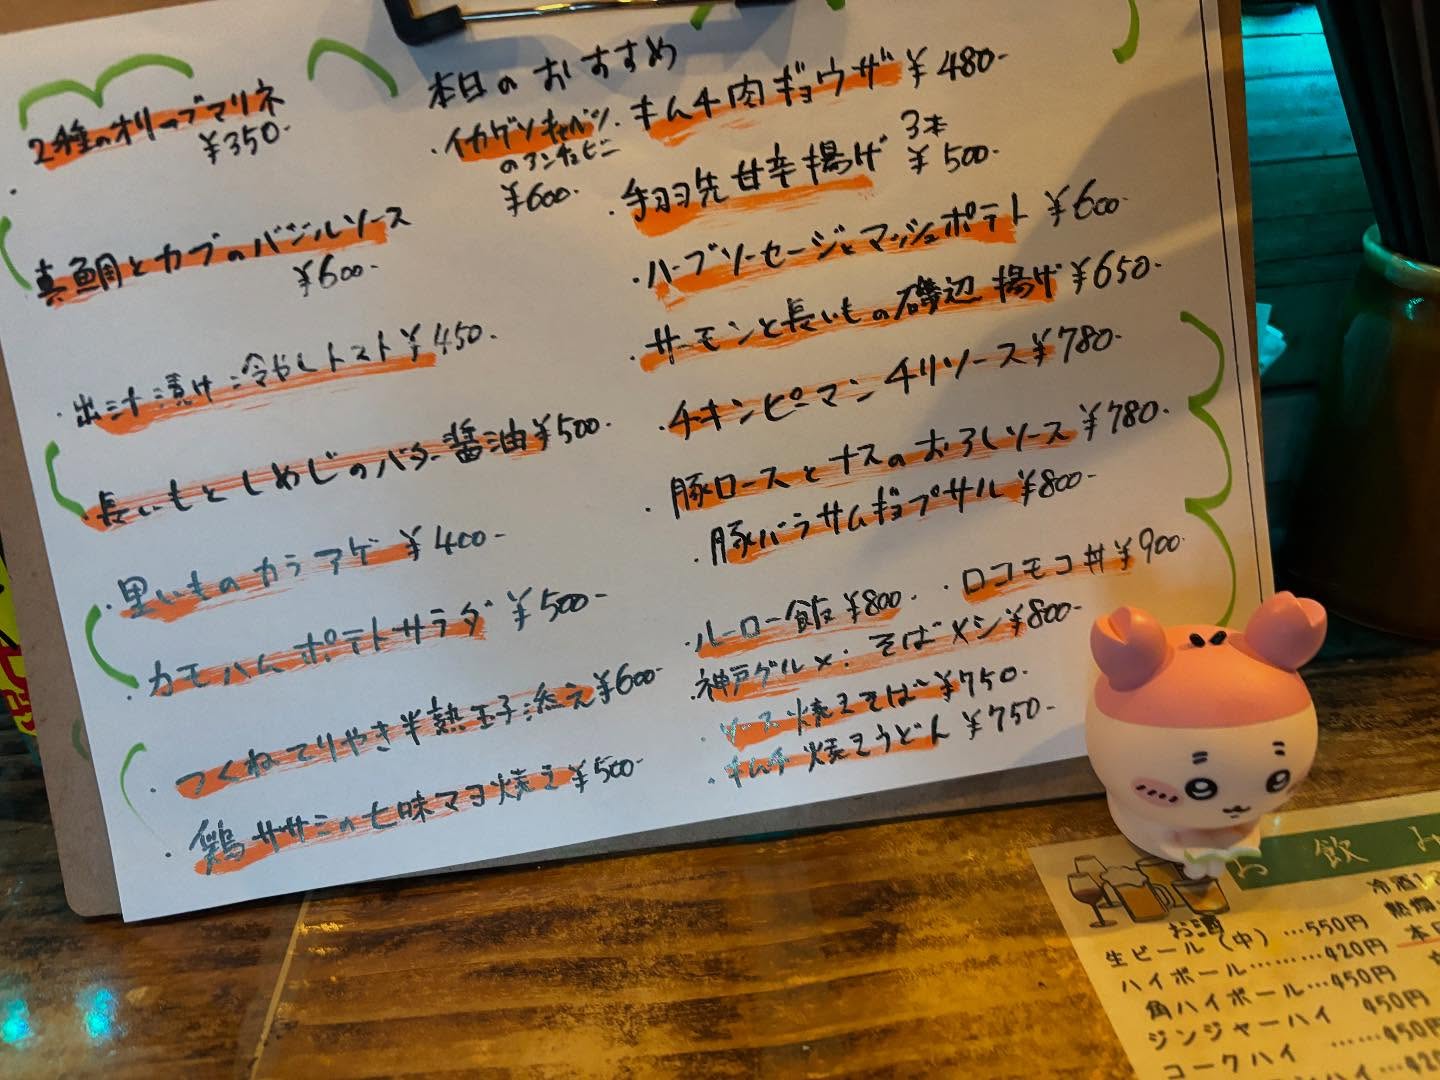 本日のおすすめ
2種のオリーブマリネ
¥350-
真鯛とカブのバジルソース
¥600-
出汁漬け冷やしトマト¥450-
長いもとしめじのバター醤油¥500-
里いものカラアゲ ¥400-
カモハムポテトサラダ ¥500-
つくねてりやき半熟玉子添え¥600-
鶏ササミの七味マヨ焼き¥500-
イカゲソキャベツ
のアンチョビ
¥600-
キムチ肉ギョウザ ¥480-
手羽先甘辛揚げ 3本
¥500-
ハーブソーセージとマッシュポテト ¥600-
サーモンと長いもの磯辺揚げ¥650-
チキンピーマンチリソース¥780-
豚ロースとナスのおろしソース¥780-
豚バラサムギョプサル ¥800-
ルーロー飯¥800- ・ロコモコ丼¥900-
神戸グルメ:そばメシ¥800-
ソース焼きそば ¥750-
キムチ焼きうどん ¥750-
お飲み
お酒
生ビール(中) …550円
ハイボール………420円
角ハイボール…450円
ジンジャーハイ 450円
コークハイ ……450円
冷酒
熱燗